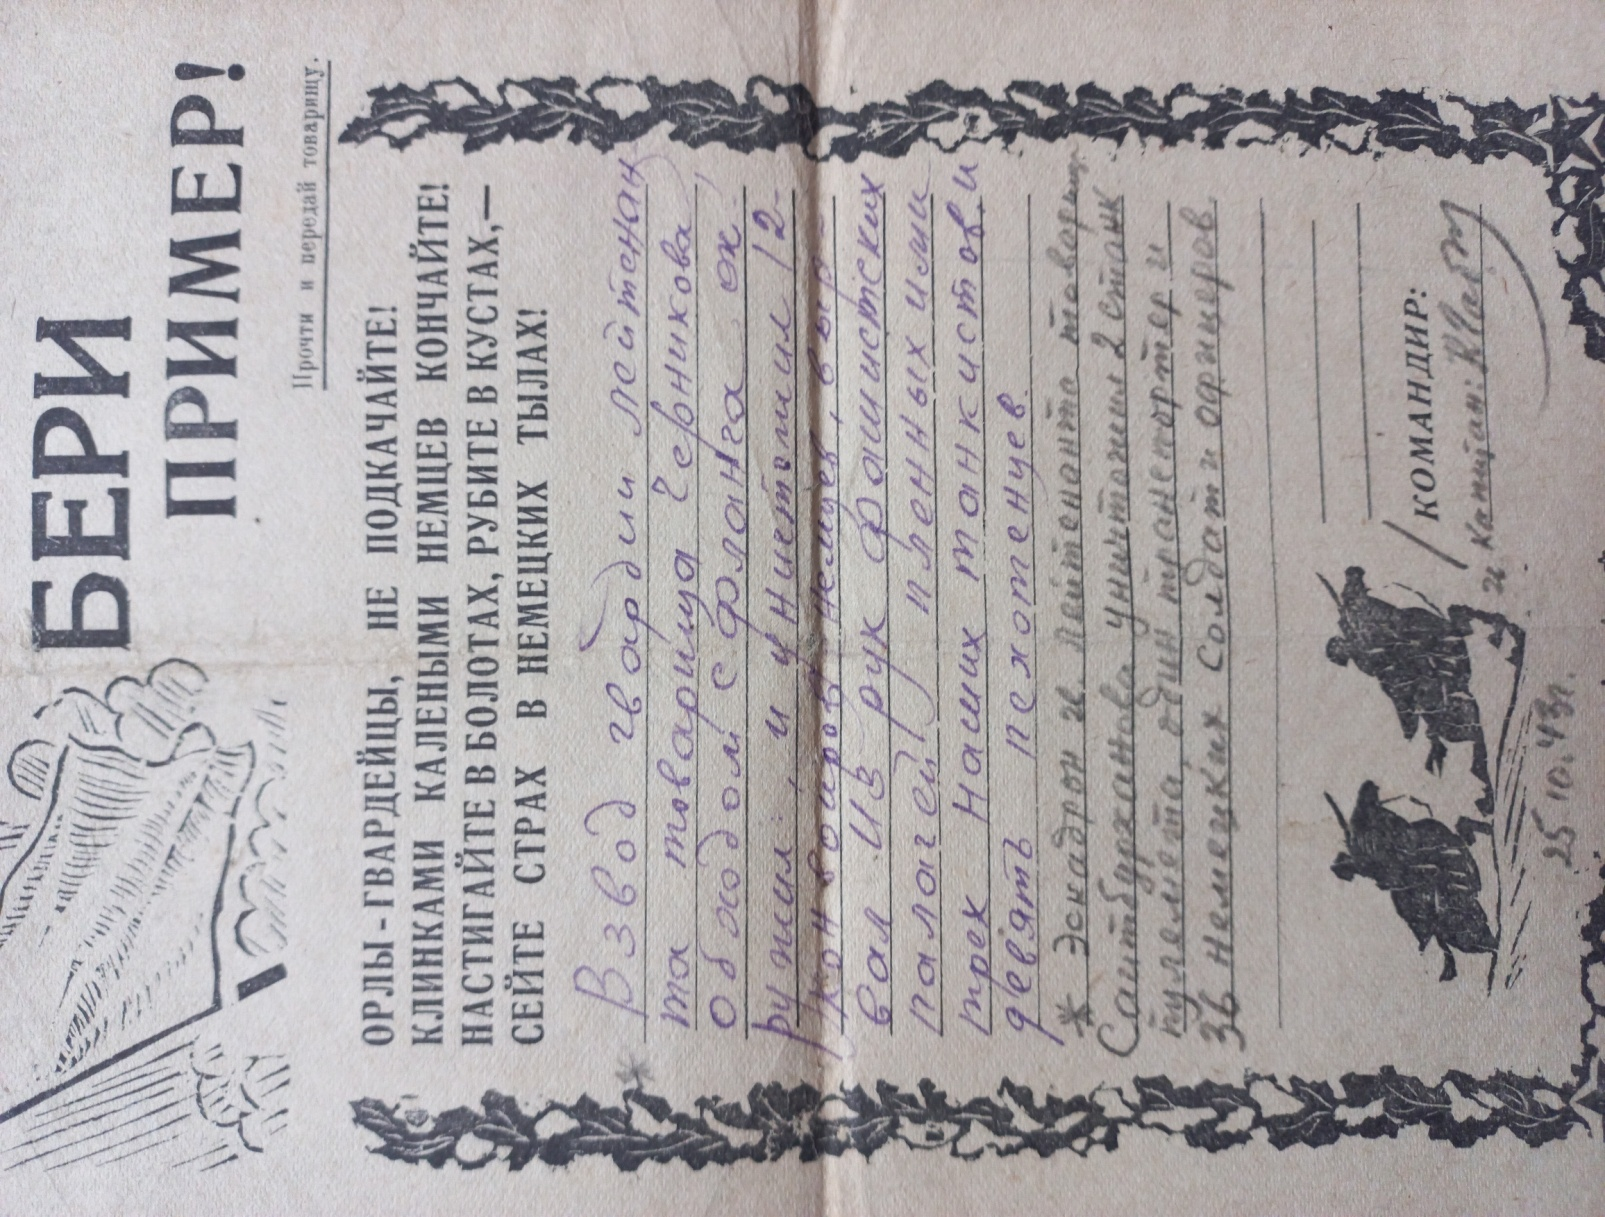 БЕРИ
ПРИМЕР!
Прочти и передай товарищу.
ОРЛЫ-ГВАРДЕЙЦЫ, НЕ ПОДКАЧАЙТЕ!
КЛИНКАМИ КАЛЕНЫМИ НЕМЦЕВ КОНЧАЙТЕ!
НАСТИГАЙТЕ В БОЛОТАХ, РУБИТЕ В КУСТАХ,—
СЕЙТЕ СТРАХ В НЕМЕЦКИХ ТЫЛАХ!
* Взвод гвардии лейтенан
та товарища Черникова
обходом с фланга ок
ружил и уничтожил 12
конвоиров немцев, выр-
вал из рук фашистских
палачей пленных
трех наших танкистов и
девять пехотенцев.
* Эскадрон г. лейтенанта товарищ
Саитбурханова уничтожил 2 станк
пулемета, один транспортер и
36 немецких солдат и офицеров
КОМАНДИР:
г. капитан:
25.10.43г.